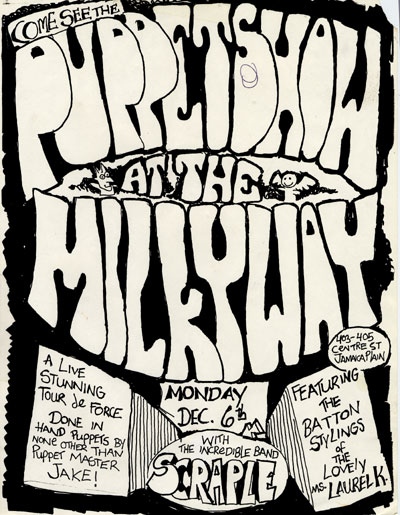 COME SEE THE
PUPPETSHOW
AT THE
MILKYWAY
403-405
CENTRE ST
JAMAICA PLAIN
A LIVE
STUNNING
TOUR de FORCE
DONE IN
HAND PUPPETS BY
NONE OTHER THAN
PUPPET MASTER
JAKE!
MONDAY
DEC. 6th
WITH
THE INCREDIBLE BAND
SCRAPLE
FEATURING
THE
BATTON
STYLINGS
of
THE
LOVELY
MS. LAUREL K.